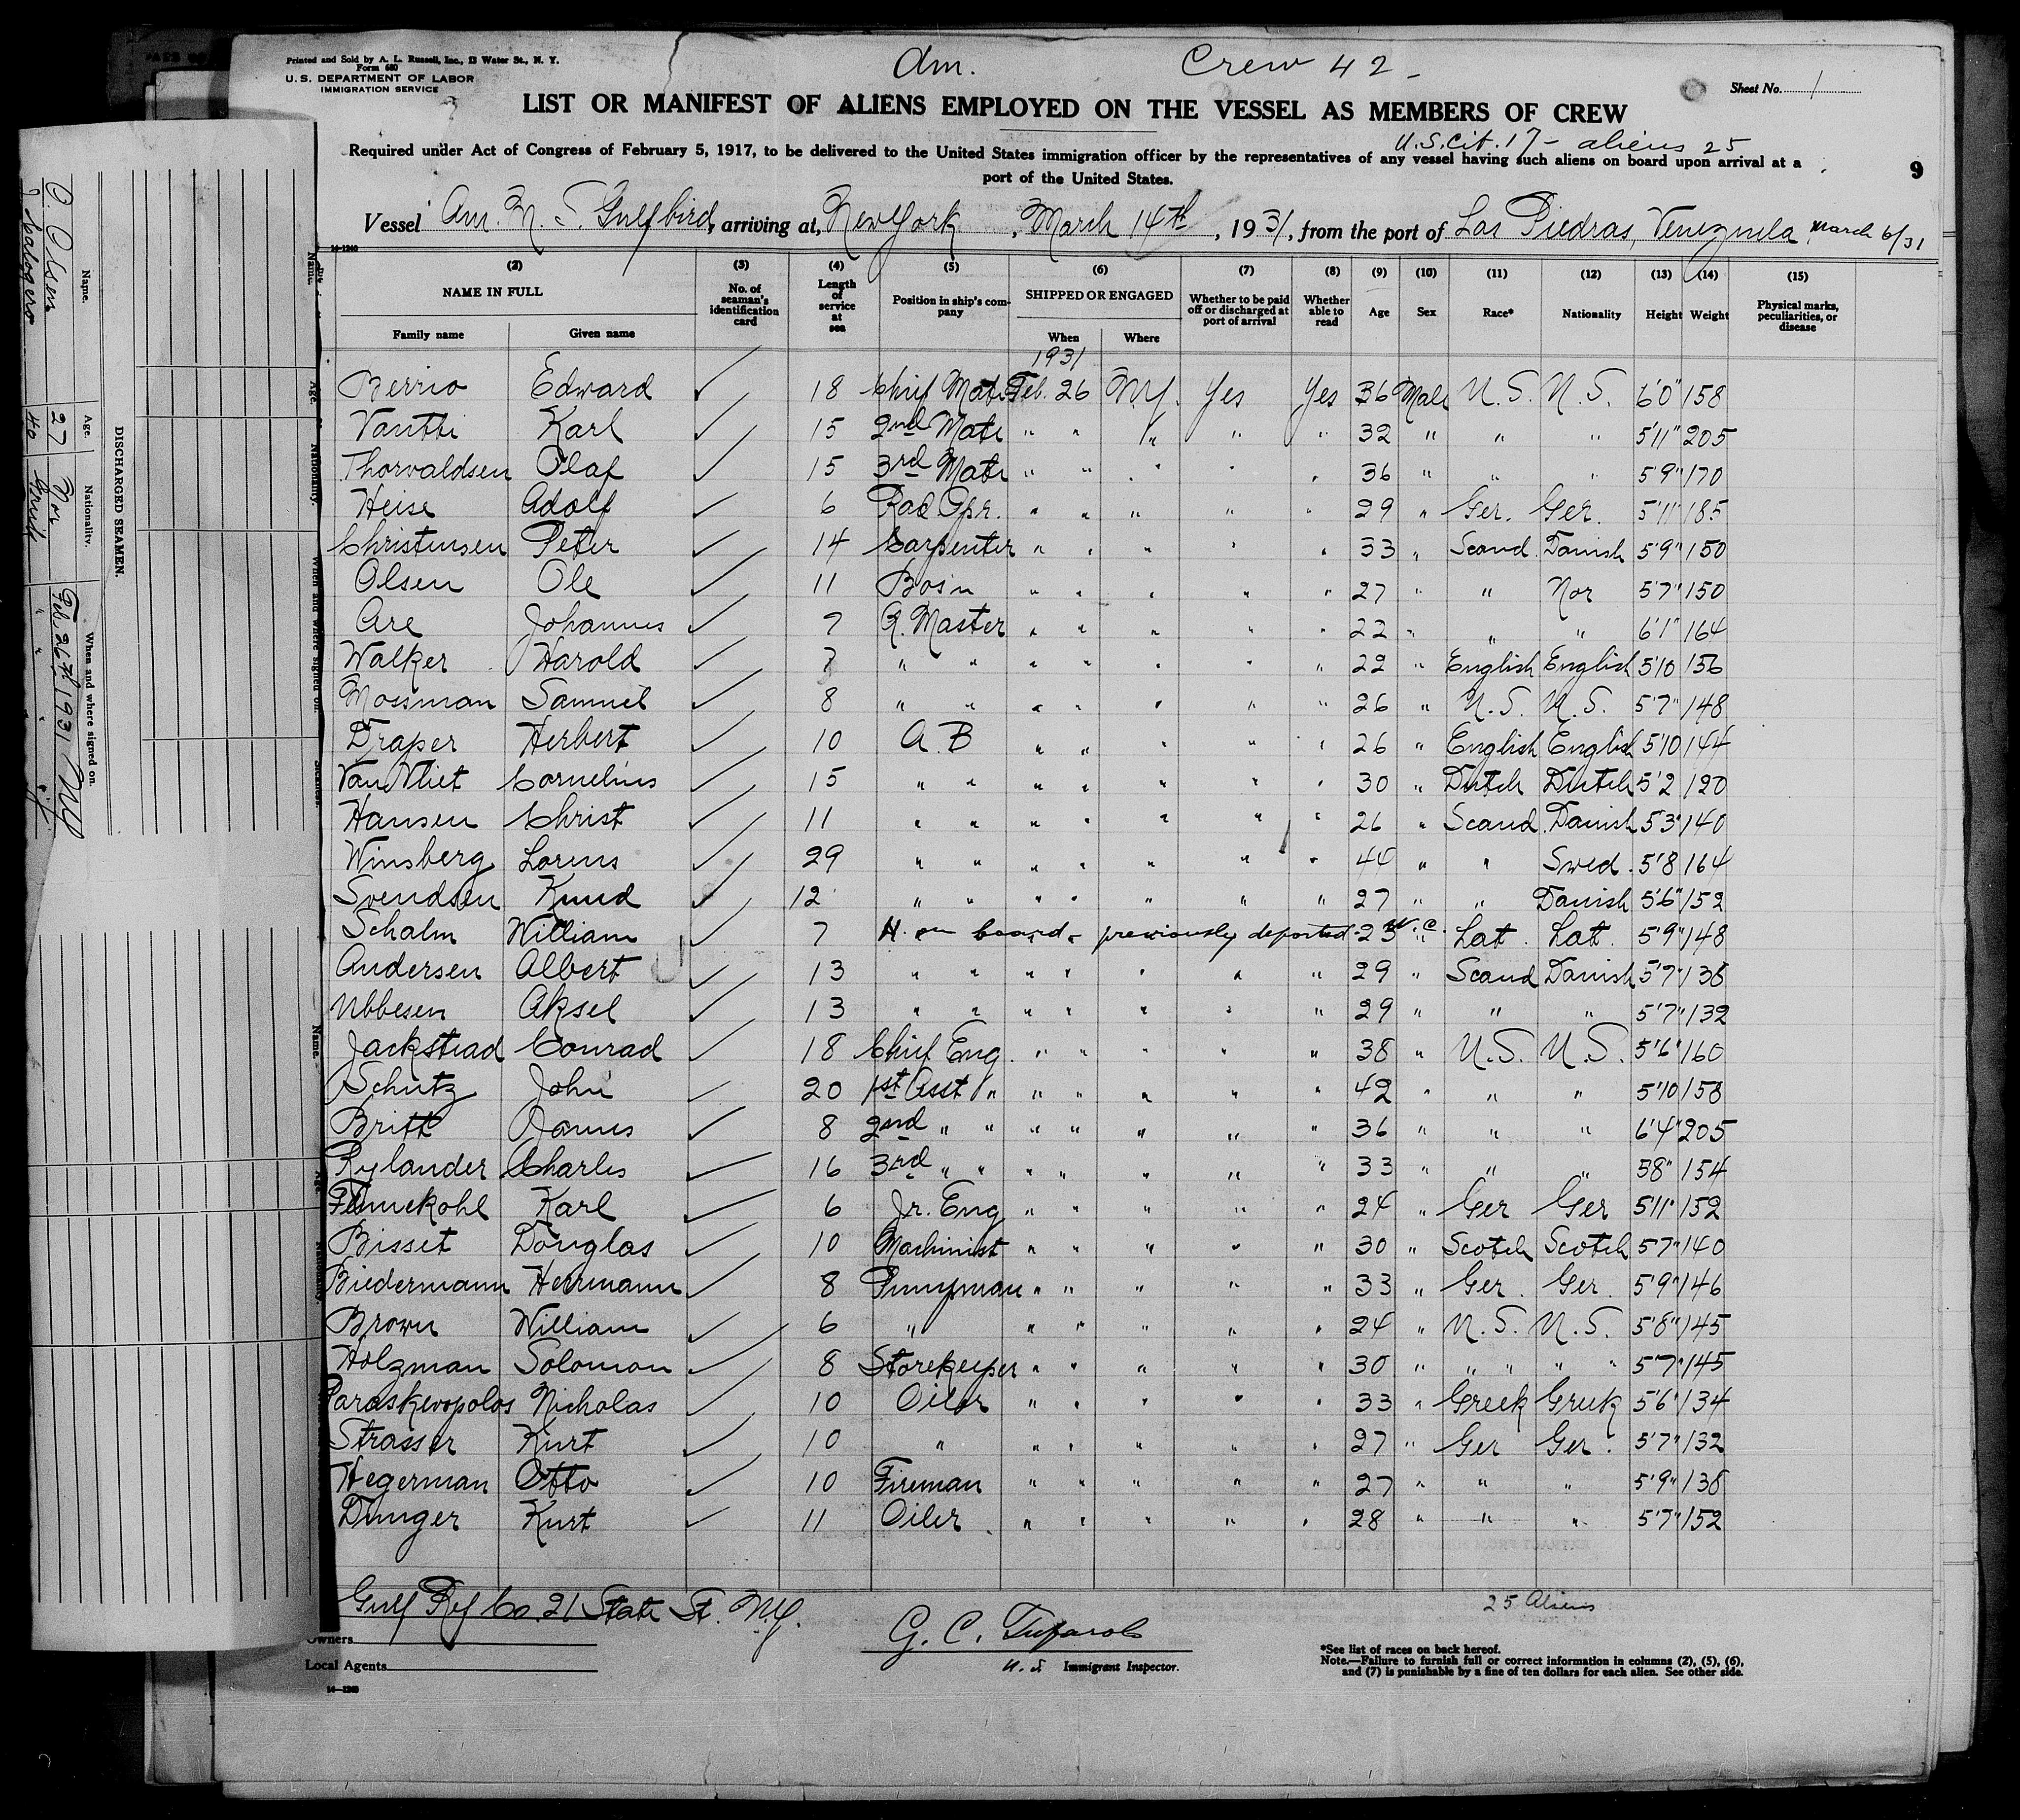 Printed and Sold by A. L. Russell, Inc., 13 Water St., N. Y.
Form 680
U. S. DEPARTMENT OF LABOR
IMMIGRATION SERVICE
Am. Crew 42 -
Sheet No. 1
LIST OR MANIFEST OF ALIENS EMPLOYED ON THE VESSEL AS MEMBERS OF CREW
U.S. Cit. 17 - aliens 25
Required under Act of Congress of February 5, 1917, to be delivered to the United States immigration officer by the representatives of any vessel having such aliens on board upon arrival at a
port of the United States.
9
Vessel Am. M. S. Gulfbird, arriving at, New York, March 14th, 1931, from the port of Las Piedras, Venezuela, March 6/31
14-1240
(2) (3) (4) (5) (6) (7) (8) (9) (10) (11) (12) (13) (14) (15)
NAME IN FULL No. of seaman's identification card Length of service at sea Position in ship's company SHIPPED OR ENGAGED Whether to be paid off or discharged at port of arrival Whether able to read Age Sex Race* Nationality Height Weight Physical marks, peculiarities, or disease
Family name Given name When Where
1931
Berrio Edward ✓ 18 Chief Mate Feb. 26 N.Y. Yes Yes 36 Male U.S. U.S. 6'0" 158
Vantti Karl ✓ 15 2nd Mate " " " " " 32 " " " 5'11" 205
Thorvaldsen Olaf ✓ 15 3rd Mate " " " " " 36 " " " 5'9" 170
Heise Adolf ✓ 6 Rad. Opr. " " " " " 29 " Ger. Ger. 5'11" 185
Christensen Peter ✓ 14 Carpenter " " " " " 33 " Scand. Danish 5'9" 150
Olsen Ole ✓ 11 Bos'n " " " " " 27 " " Nor 5'7" 150
Are Johannes ✓ 7 Q. Master " " " " " 22 " " " 6'1" 164
Walker Harold ✓ 7 " " " " " " " 22 " English English 5'10 156
Mossman Samuel ✓ 8 " " " " " " " 26 " U.S. U.S. 5'7" 148
Draper Herbert ✓ 10 A.B " " " " " 26 " English English 5'10 144
Van Vliet Cornelius ✓ 15 " " " " " " " 30 " Dutch Dutch 5'2 120
Hansen Christ ✓ 11 " " " " " " " 26 " Scand. Danish 5'3" 140
Winsberg Lorens ✓ 29 " " " " " " " 44 " " Swed. 5'8 164
Svendsen Knud ✓ 12 " " " " " " " 27 " " Danish 5'6" 152
Schalm William 7 on board - previously deported - 23 " Lat. Lat. 5'9" 148
Andersen Albert ✓ 13 " " " " " " " 29 " Scand Danish 5'7" 138
Ubbesen Aksel ✓ 13 " " " " " " " 29 " " " 5'7" 132
Jackstead Conrad ✓ 18 Chief Eng. " " " " " 38 " U.S. U.S. 5'6" 160
Schutz John ✓ 20 1st Asst " " " " " " 42 " " " 5'10 158
Britt James ✓ 8 2nd " " " " " " " 36 " " " 6'4" 205
Rylander Charles ✓ 16 3rd " " " " " " " 33 " " " 58" 154
Karl ✓ 6 Jr. Eng " " " " " 24 " Ger Ger 5'11" 152
Bisset Douglas ✓ 10 Machinist " " " " " 30 " Scotch Scotch 57" 140
Biedermann Herrmann ✓ 8 Pumpman " " " " " 33 " Ger. Ger. 5'9" 146
Brown William ✓ 6 " " " " " " 24 " U.S. U.S. 5'8" 145
Holzman Solomon ✓ 8 Storekeeper " " " " " 30 " " " " " 5'7" 145
Paraskevopolos Nicholas ✓ 10 Oiler " " " " " 33 " Greek Greek 5'6" 134
Strasser Kurt ✓ 10 " " " " " " 27 " Ger Ger. 5'7" 132
Hegerman Otto ✓ 10 Fireman " " " " " 27 " " " 5'9" 138
Dunger Kurt ✓ 11 Oiler " " " " " 28 " " " 5'7" 152
25 Aliens
Gulf Ref Co. 21 State St. N.Y.
Owners
Local Agents
14-1240
G. C.
U.S. Immigrant Inspector.
*See list of races on back hereof.
Note.—Failure to furnish full or correct information in columns (2), (5), (6),
and (7) is punishable by a fine of ten dollars for each alien. See other side.
DISCHARGED SEAMEN.
Name. Age. Nationality. When and where signed on.
O. Olsen 27 Nor Feb. 26th 1931 NY
J. Calogero 40 Greek " " "